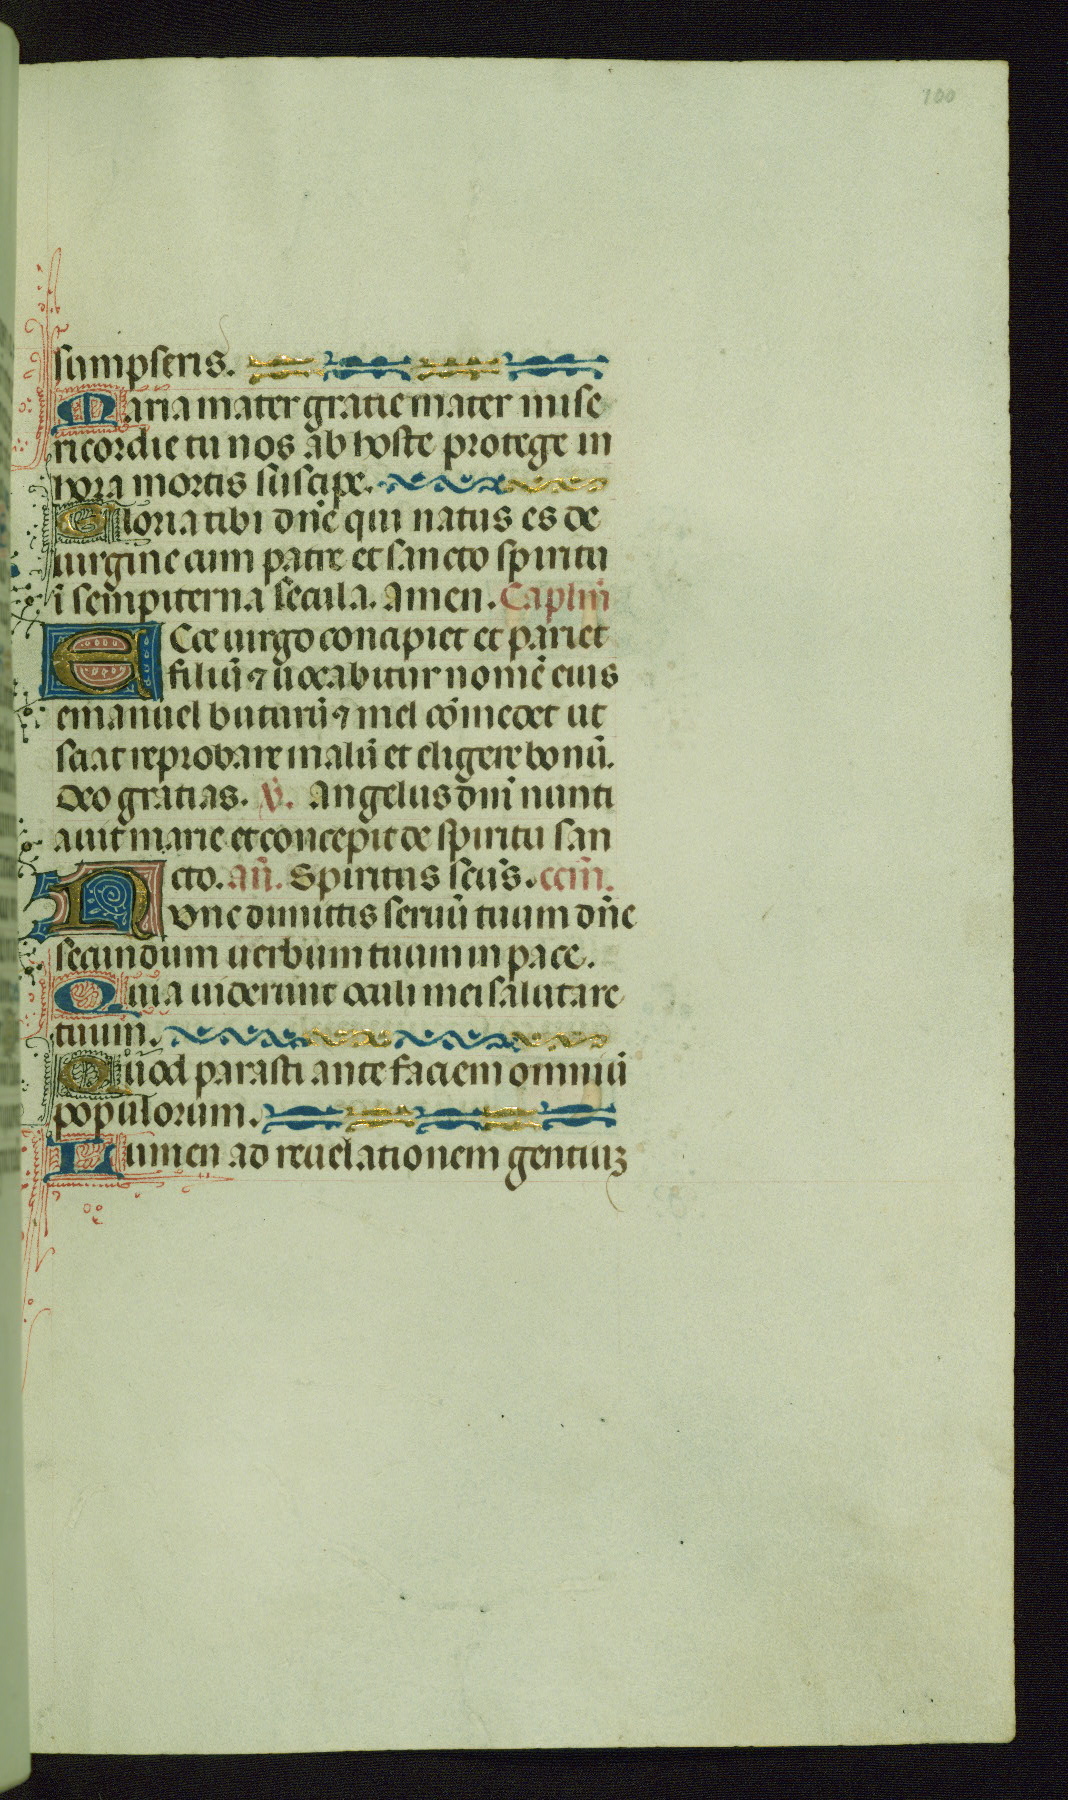 100
sumpseris.
Maria mater gratie mater mise
ricordie tu nos ab hoste protege in
hora mortis suscipe.
Gloria tibi dn̄e qui natus es de
uirgine cum patre et sancto spiritu
ī sem̄piterna secula. Amen. Caplm̄
ECce uirgo concipiet et pariet
filiuȷ̄ ⁊ uocabitur nomē eius
emanuel buturū ⁊ mel cōmedet ut
sciat reprobare malū et eligere bonū.
Deo gratias. V̄. Angelus dn̄i nunti
auit marie et concepit de spiritu san
cto. an̄. Spiritus scūs. ccm̄.
NVnc dimittis seruū tuum dn̄e
secundum uerbum tuum in pace.
Quia uiderunt oculi mei salutare
tuum.
Quod parasti ante faciem omniū
populorum.
Lumen ad reuelationem gentiuꝫ